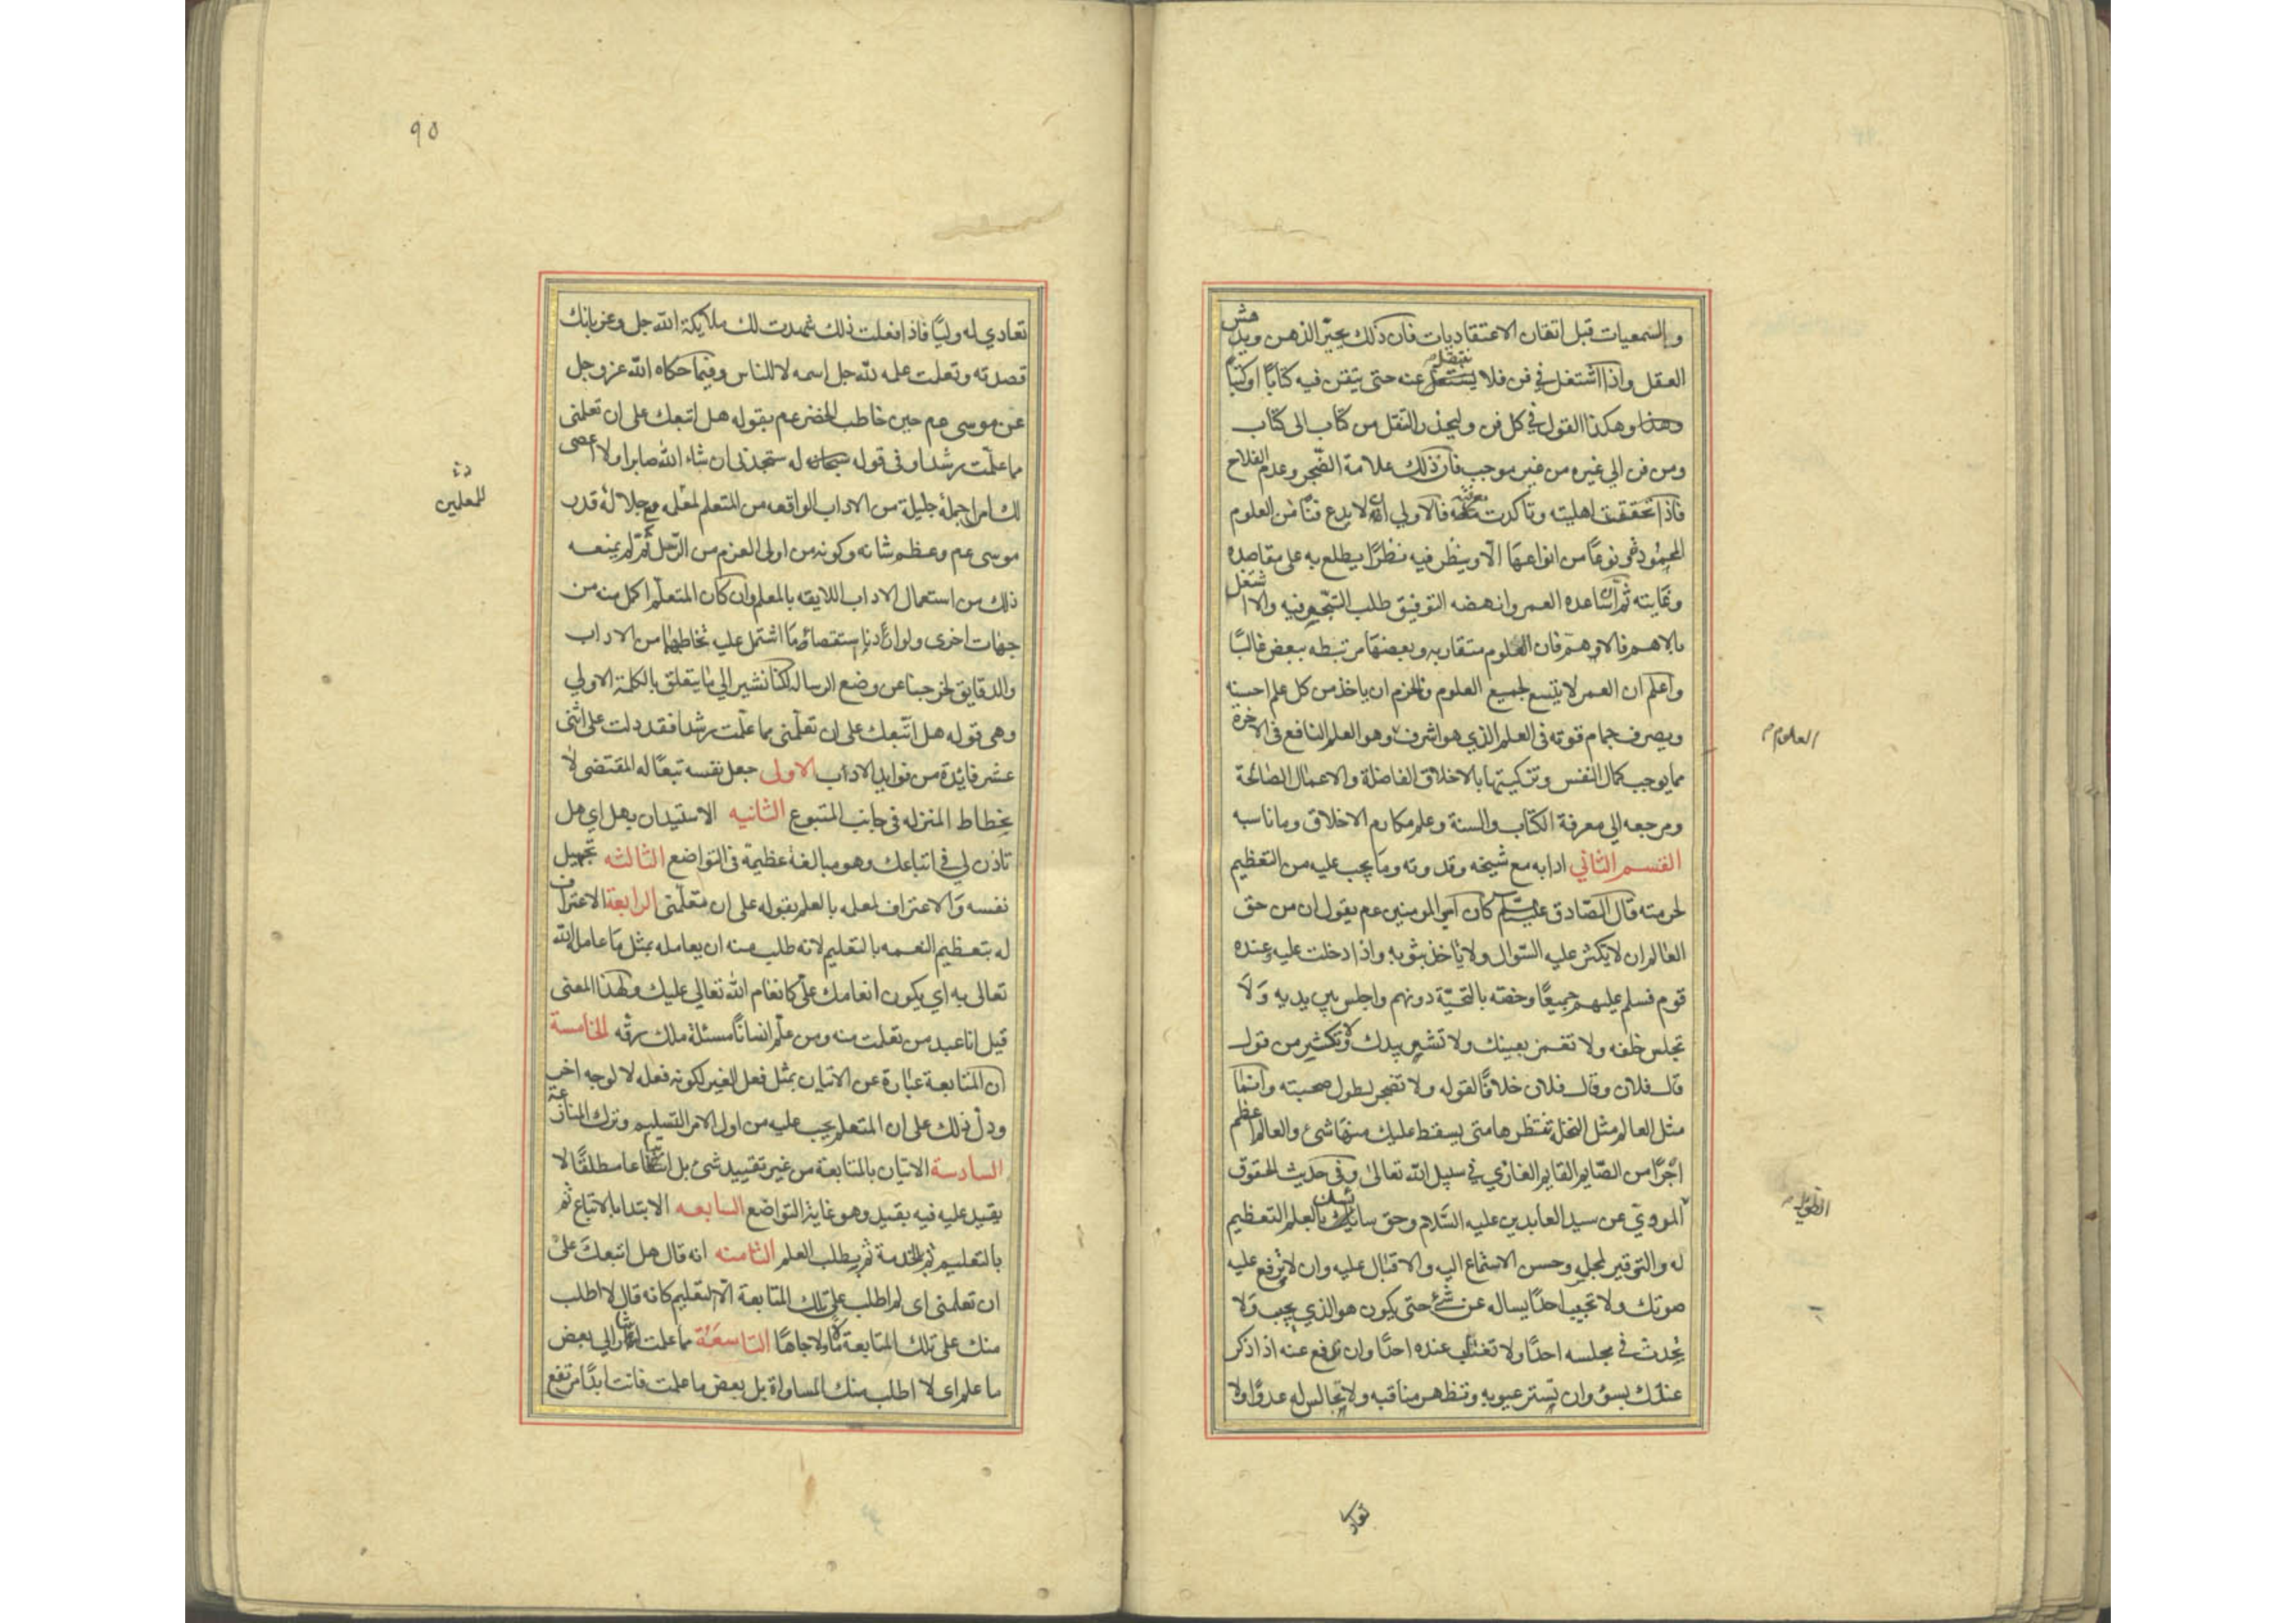 والسمعيات قبل اتقان الاعتقاديات فان ذلك يحير الذهن ويدهش
العقل واذا اشتغل في فن فلا ينتقل عنه حتى يتقن فيه كتابا او كتبا
وهكذا القول في كل فن وليحذر التنقل من كتاب الى كتاب
ومن فن الي غيره من غير موجب فان ذلك علامة الضجر وعدم الفلاح
فاذا تحققت اهليته وتاكدت معرفته فالاولي له ان لا يدع فنا من العلوم
المحمودة ونوعا من انواعها الا وينظر فيه نظرا يطلع به على مقاصده
وغايته ثم ان ساعده العمر وانهضه التوفيق طلب التبحر فيه والا اشتغل
بالاهم فالاهم فان العلوم متقاربه وبعضها مرتبطه ببعض غالبا
واعلم ان العمر لا يتسع لجميع العلوم فالحزم ان ياخذ من كل علم احسنه
ويصرف جمام قوته في العلم الذي هو اشرف وهو العلم النافع في الاخرة
العلوم
مما يوجب كمال النفس وتزكيتها بالاخلاق الفاضلة والاعمال الصالحة
ومرجعه الي معرفة الكتاب والسنة وعلم مكارم الاخلاق وما ناسبه
القسم الثاني ادابه مع شيخه وقدوته وما يجب عليه من التعظيم
لحرمته قال الصادق عليه السلام كان امير المومنين عم يقول ان من حق
العالم ان لا يكثر عليه السوال ولا ياخذ بثوبه واذا دخلت عليه وعنده
قوم فسلم عليهم جميعا وخصه بالتحية دونهم واجلس بين يديه ولا
تجلس خلفه ولا تغمز بعينك ولا تشير بيدك ولا تكثر من قول
قال فلان وقال فلان خلافا لقوله ولا تضجر لطول صحبته وانما
مثل العالم مثل النخل تنتظرها متى يسقط عليك منها شئ والعالم اعظم
اجرا من الصايم القايم الغازي في سبيل الله تعالى وفي حديث الحقوق
الطويل
المروي عن سيد العابدين عليه السلام وحق سايسك بالعلم التعظيم
له والتوقير لمجلسه وحسن الاستماع اليه والاقبال عليه وان لا ترفع عليه
صوتك ولا تجيب احدا يساله عن شئ حتى يكون هو الذي يجيب ولا
تحدث في مجلسه احدا ولا تغتاب عنده احدا وان تدفع عنه اذا ذكر
عندك بسوء وان تستر عيوبه وتظهر مناقبه ولا تجالس له عدوا ولا
تعاد
٩٥
تعادي له وليا فاذا فعلت ذلك شهدت لك ملايكة الله جل وعز بانك
قصدته وتعلمت علمه لله جل اسمه لا للناس وفيما حكاه الله عز وجل
عن موسى عم حين خاطب الخضر عم بقوله هل اتبعك على ان تعلمنى
مما علمت رشدا وفى قوله له ستجدنى ان شاء الله صابرا ولا اعصى
للمعلمين
لك امرا جملة جليلة من الاداب الواقعه من المتعلم لمعلمه مع جلالة قدر
موسى عم وعظم شانه وكونه من اولى العزم من الرسل ثم لم يمنعه
ذلك من استعمال الاداب اللايقه بالمعلم وان كان المتعلم اكمل منه من
جهات اخرى ولو اردنا استقصاء ما اشتمل عليه تخاطبهما من الاداب
والدقايق لخرجنا عن وضع الرساله لكنا نشير الي ما يتعلق بالكلمة الاولي
وهى قوله هل اتبعك على ان تعلمنى مما علمت رشدا فقد دلت على اثنى
عشر فائدة من فوايد الاداب الاول جعل نفسه تبعا له المقتضى لا
نحطاط المنزله فى جانب المتبوع الثانيه الاستيذان بهل اي هل
تاذن لي في اتباعك وهو مبالغة عظيمة في التواضع الثالثه تجهيل
نفسه والاعتراف لمعلمه بالعلم بقوله على ان تعلمنى الرابعة الاعتراف
له بتعظيم النعمه بالتعليم لانه طلب منه ان يعامله بمثل ما عامله الله
تعالى به اي يكون انعامك علي كانعام الله تعالي عليك ولهذا المعنى
قيل انا عبد من تعلمت منه ومن علم انسانا مسئلة ملك رقه الخامسة
ان المتابعة عبارة عن الاتيان بمثل فعل الغير لكونه فعله لا لوجه اخر
ودل ذلك على ان المتعلم يجب عليه من اول الامر التسليم وترك المنازعة
السادسة الاتيان بالمتابعة من غير تقييد شئ بل اتباعا مطلقا لا
يقيد عليه فيه بقيد وهو غاية التواضع السابعه الابتدا بالاتباع ثم
بالتعليم ثم بالخدمة ثم يطلب العلم الثامنه انه قال هل اتبعك على
ان تعلمنى اى لم اطلب على تلك المتابعة الا التعليم كانه قال لا اطلب
منك على تلك المتابعة مالا ولا جاها التاسعة مما علمت اشارة الي بعض
ما علم اى لا اطلب منك المساواة بل بعض ما علمت فانت ابدا مرتفع